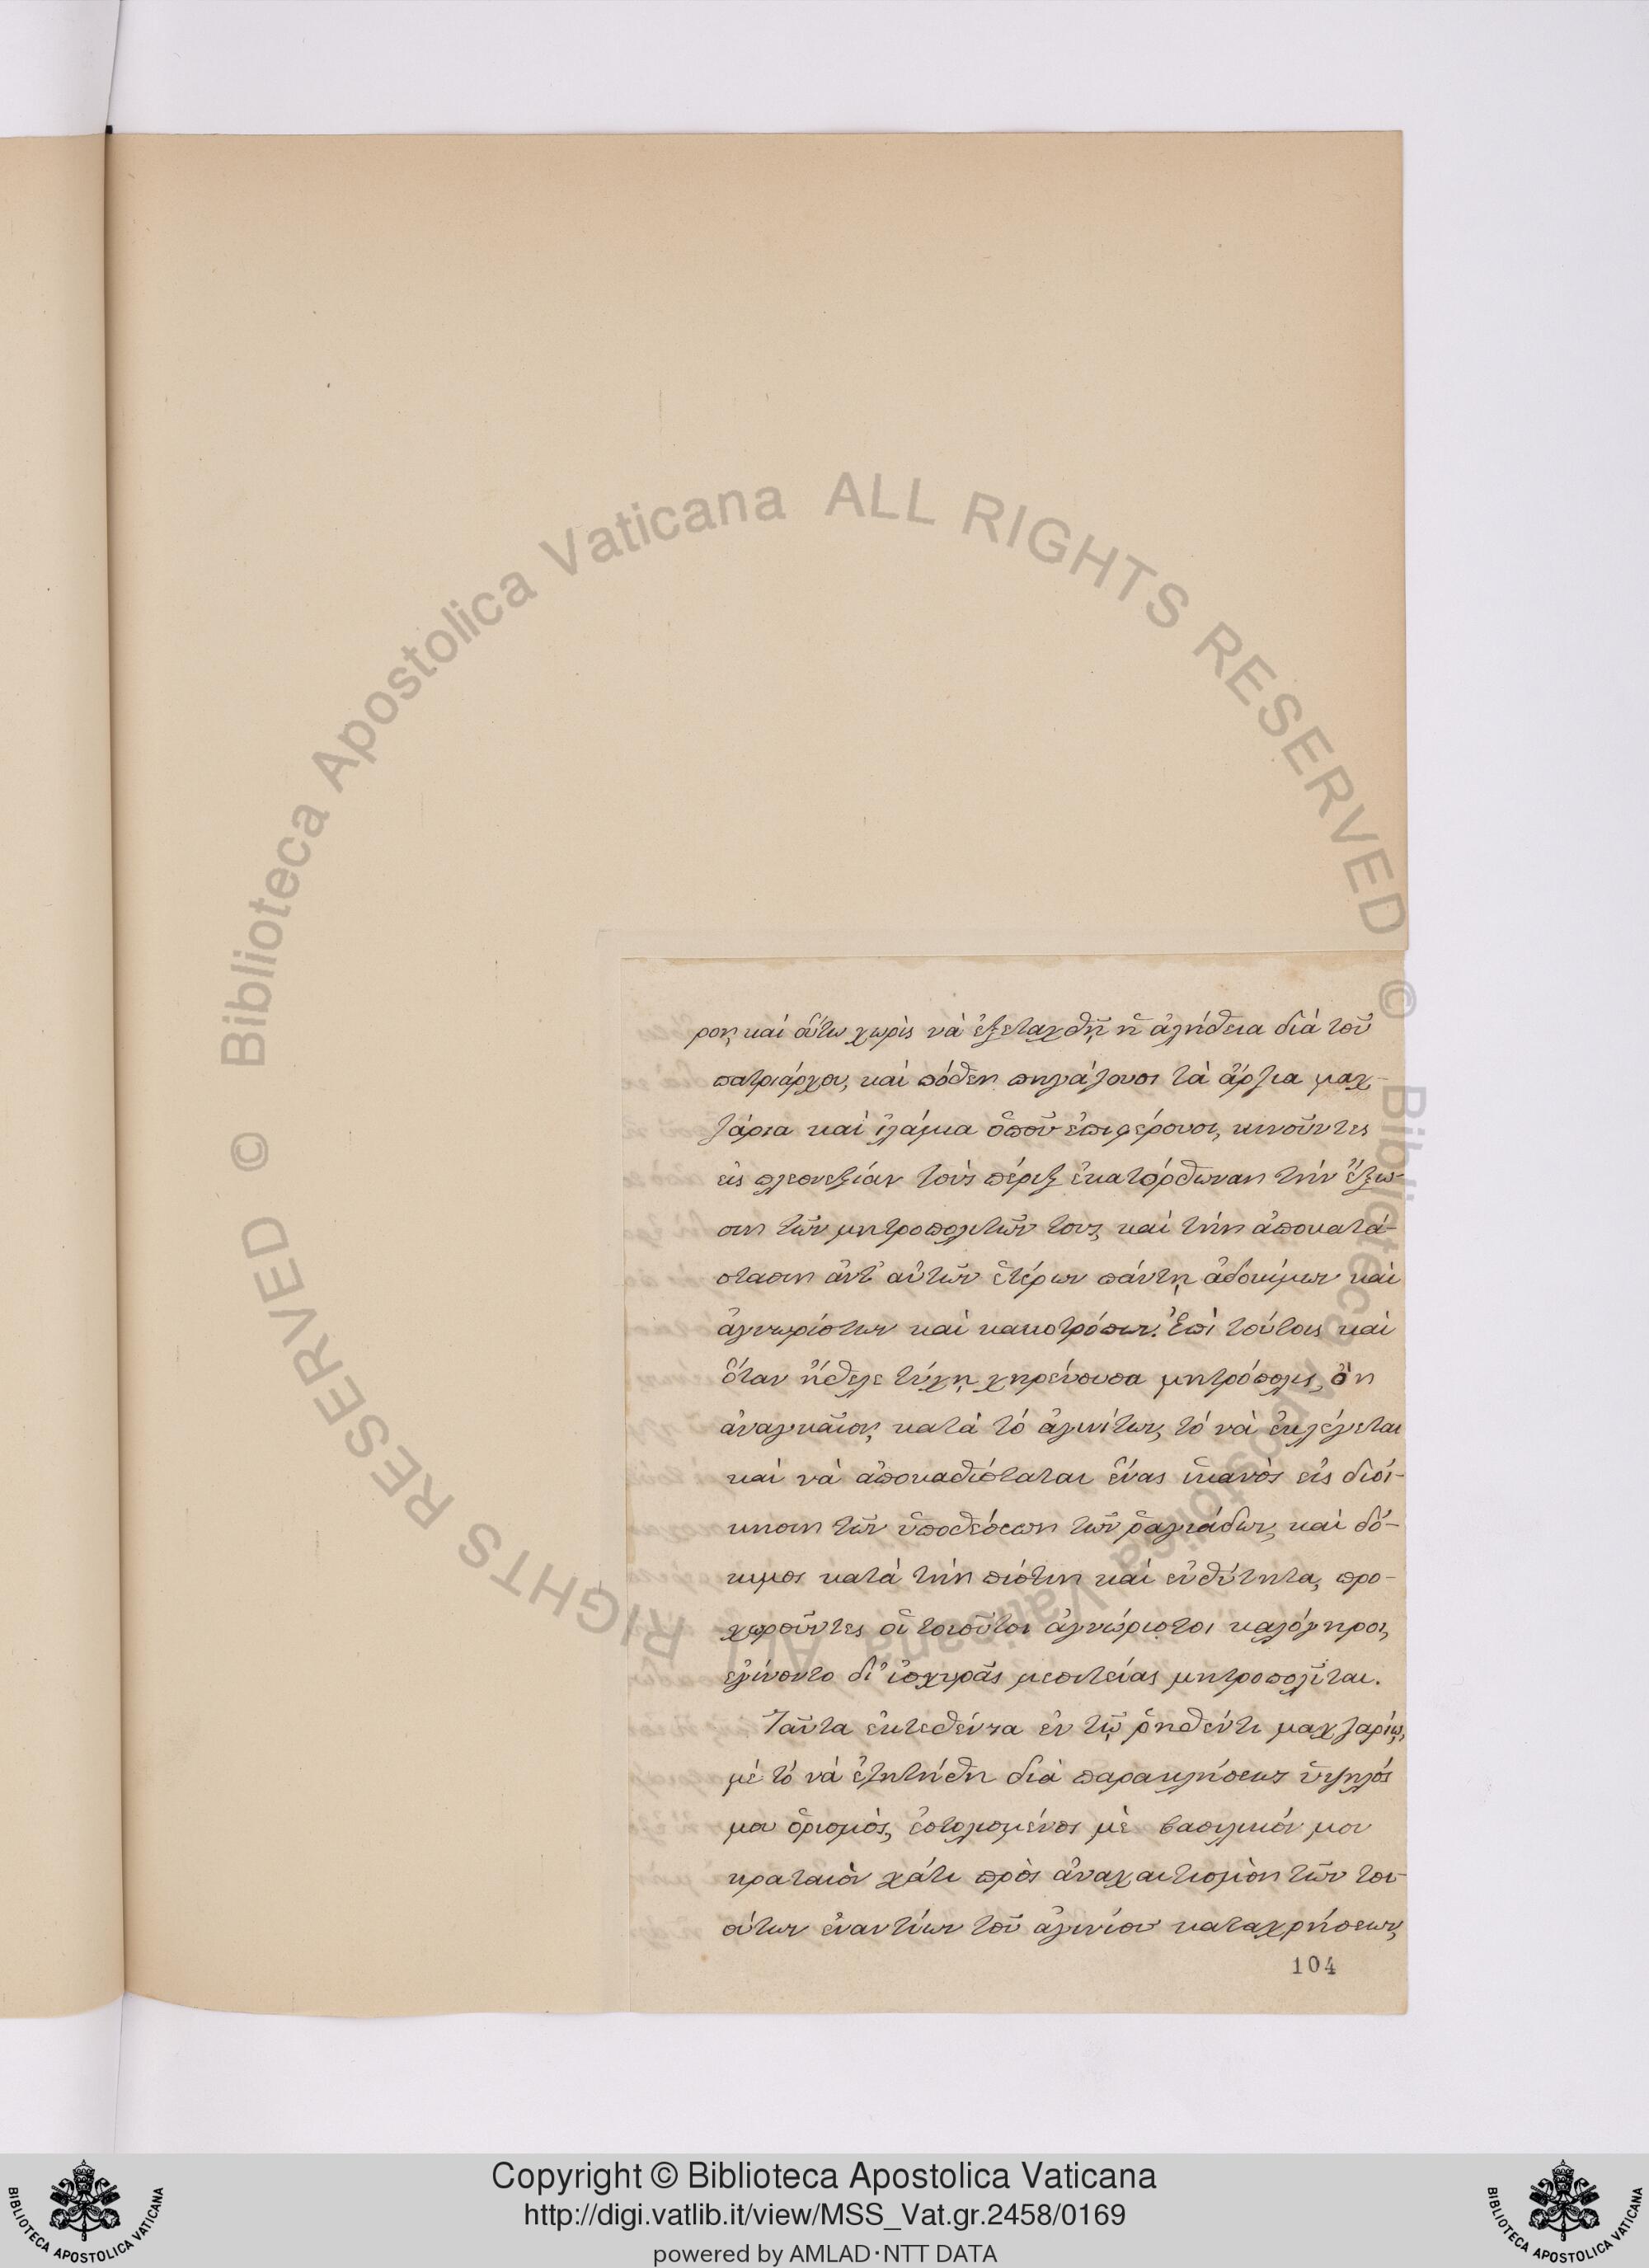 ρον, καὶ οὕτω χωρὶς νὰ ἐξεταχθῇ ἡ ἀλήθεια διὰ τοῦ
πατριάρχου, καὶ πόθεν πηγάζουσι τὰ ἄρζια μαχ-
ζάρια καὶ ἰλάμια ὁποῦ ἐπιφέρουσι, κινοῦντες
εἰς πλεονεξίαν τοὺς πέριξ ἐκατόρθωναν τὴν ἔξω-
σιν τῶν μητροπολιτῶν τους, καὶ τὴν ἀποκατά-
στασιν ἀντ' αὐτῶν ἑτέρων πάντῃ ἀδοκίμων καὶ
ἀγνωρίστων καὶ κακοτρόπων. Ἐπὶ τούτοις καὶ
ὅταν ἤθελε τύχῃ χηρεύουσα μητρόπολις, ὂν
ἀναγκαῖον, κατὰ τὸ ἀγινίτων, τὸ νὰ ἐκλέγεται
καὶ νὰ ἀποκαθίσταται ἕνας ἱκανὸς εἰς διοί-
κησιν τῶν ὑποθέσεων τῶν ῥαγιάδων, καὶ δό-
κιμος κατὰ τὴν πίστιν καὶ εὐθύτητα, προ-
χωροῦντες οἱ τοιοῦτοι ἀγνώριστοι καλόγηροι,
ἐγίνοντο δι' ἰσχυρᾶς μεσιτείας μητροπολῖται.
Ταῦτα ἐκτεθέντα ἐν τῷ ῥηθέντι μαχζαρίῳ,
μὲ τὸ νὰ ἐζητήθη διὰ παρακλήσεως ὑψηλός
μου ὁρισμὸς, ἐστολισμένος μὲ βασιλικόν μου
κραταιὸν χάτι πρὸς ἀναχαιτισμὸν τῶν τοι-
ούτων ἐναντίων τοῦ ἀγινίου καταχρήσεων,
104
Copyright © Biblioteca Apostolica Vaticana
http://digi.vatlib.it/view/MSS_Vat.gr.2458/0169
powered by AMLAD·NTT DATA
BIBLIOTECA APOSTOLICA VATICANA
BIBLIOTECA APOSTOLICA VATICANA
© Biblioteca Apostolica Vaticana ALL RIGHTS RESERVED
© Biblioteca Apostolica Vaticana ALL RIGHTS RESERVED